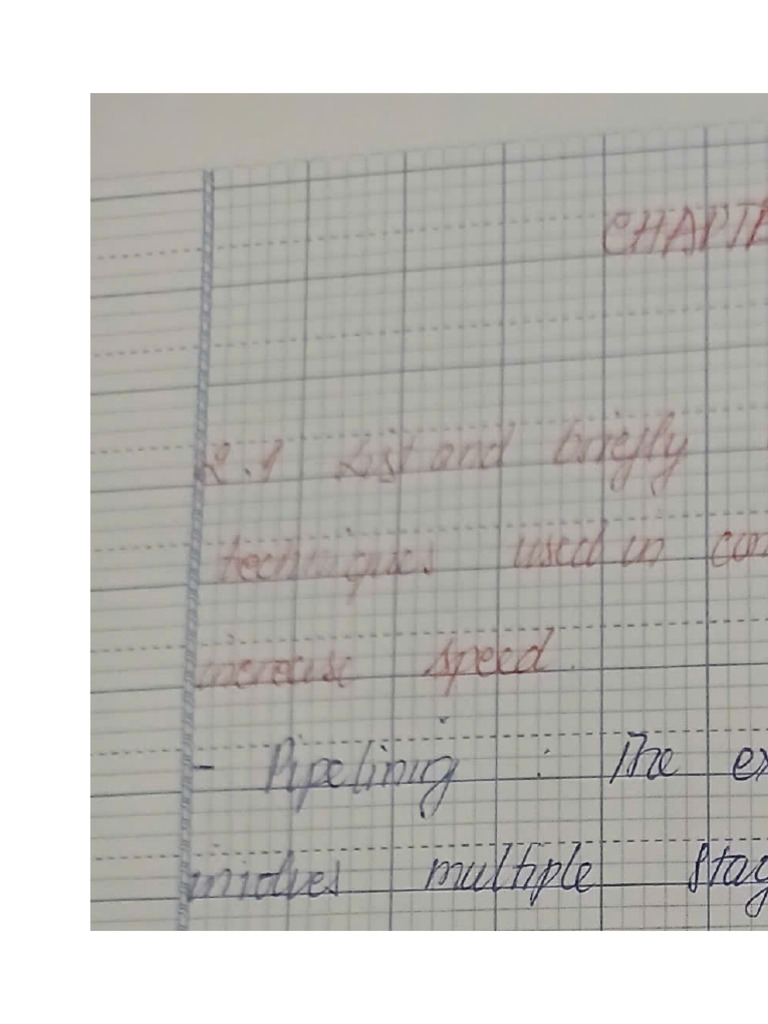 CHAPTE
2.1 List and briefly
techniques used in con
increase speed.
- Pipelining : The ex
involves multiple stag